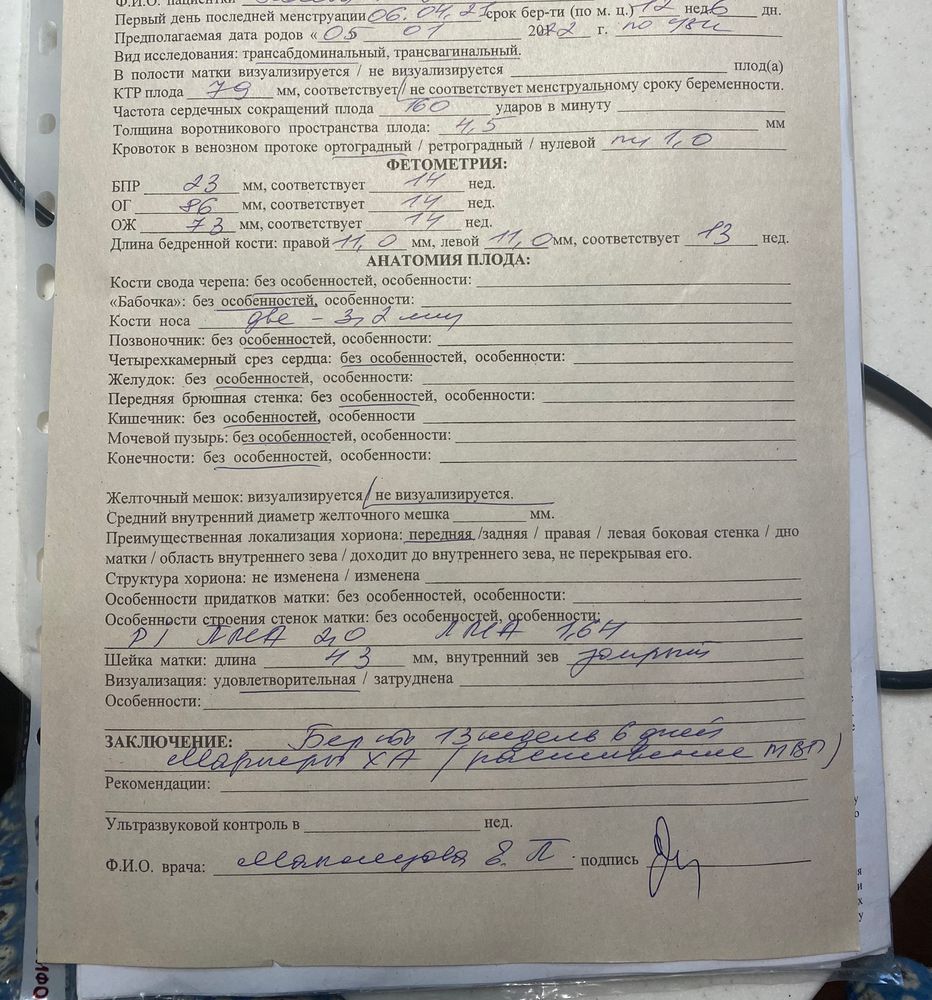 Ф.И.О. пациентки
Первый день последней менструации 06.04.21 срок бер-ти (по м. ц.) 12 нед 6 дн.
Предполагаемая дата родов « 05 01 2022 г. по УЗИ
Вид исследования: трансабдоминальный, трансвагинальный.
В полости матки визуализируется / не визуализируется плод(а)
КТР плода 79 мм, соответствует / не соответствует менструальному сроку беременности.
Частота сердечных сокращений плода 160 ударов в минуту
Толщина воротникового пространства плода: 4,5 мм
Кровоток в венозном протоке ортоградный / ретроградный / нулевой пи 1,0
ФЕТОМЕТРИЯ:
БПР 23 мм, соответствует 14 нед.
ОГ 86 мм, соответствует 14 нед.
ОЖ 73 мм, соответствует 14 нед.
Длина бедренной кости: правой 11,0 мм, левой 11,0 мм, соответствует 13 нед.
АНАТОМИЯ ПЛОДА:
Кости свода черепа: без особенностей, особенности:
«Бабочка»: без особенностей, особенности:
Кости носа две - 3,2 мм
Позвоночник: без особенностей, особенности:
Четырехкамерный срез сердца: без особенностей, особенности:
Желудок: без особенностей, особенности:
Передняя брюшная стенка: без особенностей, особенности:
Кишечник: без особенностей, особенности
Мочевой пузырь: без особенностей, особенности:
Конечности: без особенностей, особенности:
Желточный мешок: визуализируется / не визуализируется.
Средний внутренний диаметр желточного мешка мм.
Преимущественная локализация хориона: передняя /задняя / правая / левая боковая стенка / дно
матки / область внутреннего зева / доходит до внутреннего зева, не перекрывая его.
Структура хориона: не изменена / изменена
Особенности придатков матки: без особенностей, особенности:
Особенности строения стенок матки: без особенностей, особенности:
PI ПМА 2,0 ЛМА 1,64
Шейка матки: длина 43 мм, внутренний зев закрыт
Визуализация: удовлетворительная / затруднена
Особенности:
ЗАКЛЮЧЕНИЕ: Бер-ть 13 недель 6 дней
Маркеры ХА (расширение ТВП)
Рекомендации:
Ультразвуковой контроль в нед.
Ф.И.О. врача: Е. П. подпись